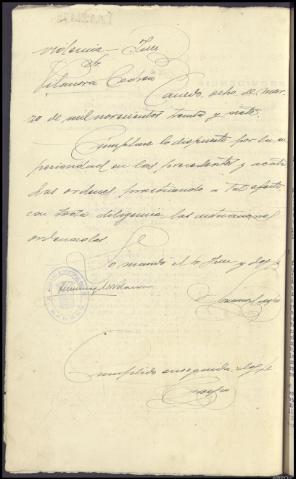 Providencia - Juez
Sr.
Vilanova Cedrón
Canedo, ocho de mar-
zo de mil novecientos treinta y siete.
Cumplase lo dispuesto por la su-
perioridad en las precedentes y acota-
das ordenes practicando a tal efecto
con toda diligencia las
ordenadas
Lo mando el Sr Juez y doy fe
Cumplido enseguida, doy fe